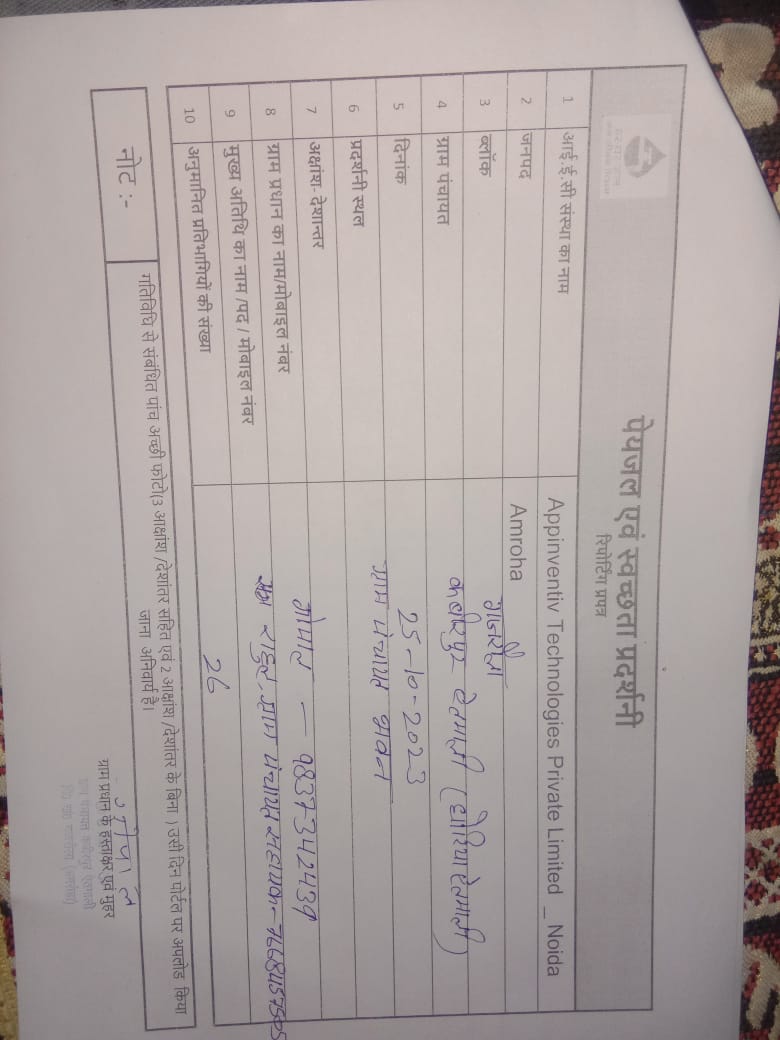 पेयजल एवं स्वच्छता प्रदर्शनी
रिपोर्टिंग प्रपत्र
1 आई.ई.सी संस्था का नाम Appinventiv Technologies Private Limited _ Noida
2 जनपद Amroha
3 ब्लॉक गजरौला
4 ग्राम पंचायत
5 दिनांक 25-10-2023
6 प्रदर्शनी स्थल ग्राम पंचायत भवन
7 अक्षांश- देशान्तर
8 ग्राम प्रधान का नाम/मोबाइल नंबर गोपाल — 9837342439
9 मुख्य अतिथि का नाम /पद / मोबाइल नंबर राहुल ग्राम पंचायत सहायक-
10 अनुमानित प्रतिभागियों की संख्या 26
नोट :- गतिविधि से संबंधित पांच अच्छी फोटो(3 आक्षांश /देशांतर सहित एवं 2 आक्षांश /देशांतर के बिना ) उसी दिन पोर्टल पर अपलोड किया
जाना अनिवार्य है।
गोपाल
ग्राम प्रधान के हस्ताक्षर एवं मुहर